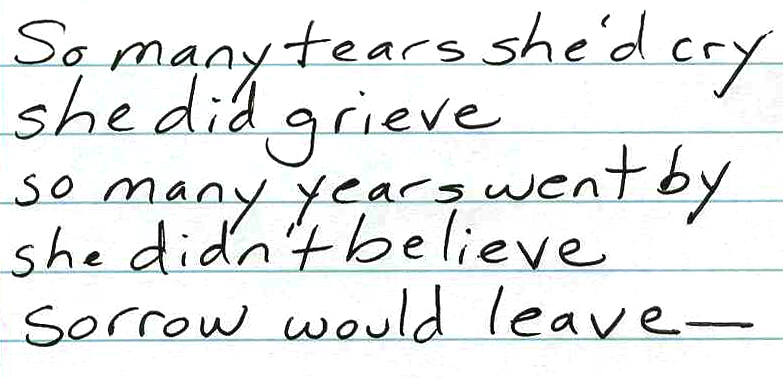 So many tears she'd cry
she did grieve
so many years went by
she didn't believe
sorrow would leave—